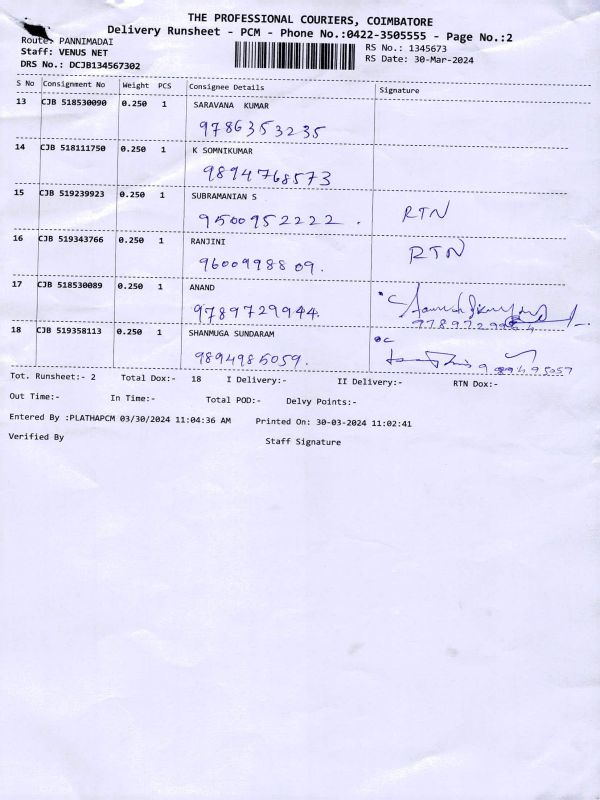 THE PROFESSIONAL COURIERS, COIMBATORE
Delivery Runsheet - PCM - Phone No.:0422-3505555 - Page No.:2
Route: PANNIMADAI
RS No.: 1345673
Staff: VENUS NET
RS Date: 30-Mar-2024
DRS No.: DCJB134567302
S No Consignment No Weight PCS Consignee Details Signature
13 CJB 518530090 0.250 1 SARAVANA KUMAR
9786353235
14 CJB 518111750 0.250 1 K SOMNIKUMAR
9894768573
15 CJB 519239923 0.250 1 SUBRAMANIAN S
9500952222 . RTN
16 CJB 519343766 0.250 1 RANJINI
9600998809. RTN
17 CJB 518530089 0.250 1 ANAND
9789729944.
18 CJB 519358113 0.250 1 SHANMUGA SUNDARAM
9894985059.
Tot. Runsheet:- 2 Total Dox:- 18 I Delivery:- II Delivery:- RTN Dox:-
Out Time:- In Time:- Total POD:- Delvy Points:-
Entered By :PLATHAPCM 03/30/2024 11:04:36 AM Printed On: 30-03-2024 11:02:41
Verified By Staff Signature